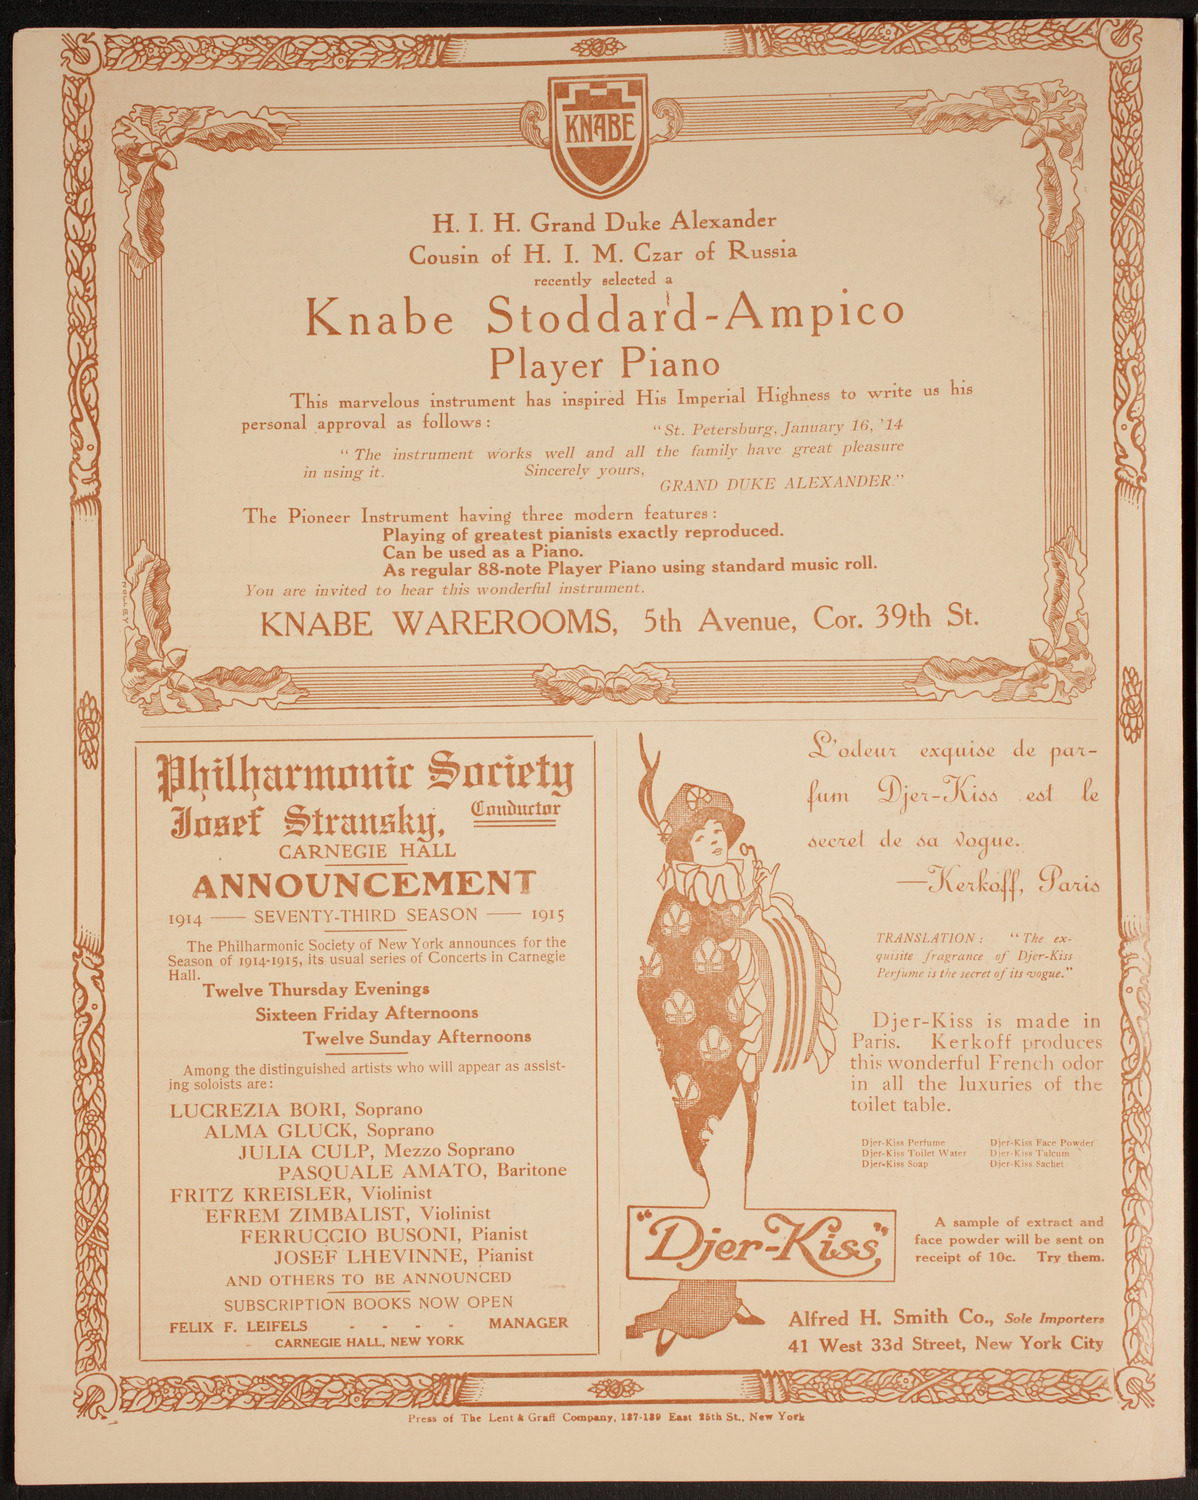 KNABE
H. I. H. Grand Duke Alexander
Cousin of H. I. M. Czar of Russia
recently selected a
Knabe Stoddard-Ampico
Player Piano
This marvelous instrument has inspired His Imperial Highness to write us his
personal approval as follows:
"St. Petersburg, January 16, '14
"The instrument works well and all the family have great pleasure
in using it. Sincerely yours,
GRAND DUKE ALEXANDER."
The Pioneer Instrument having three modern features:
Playing of greatest pianists exactly reproduced.
Can be used as a Piano.
As regular 88-note Player Piano using standard music roll.
You are invited to hear this wonderful instrument.
KNABE WAREROOMS, 5th Avenue, Cor. 39th St.
Philharmonic Society
Josef Stransky, Conductor
CARNEGIE HALL
ANNOUNCEMENT
1914 —— SEVENTY-THIRD SEASON —— 1915
The Philharmonic Society of New York announces for the
Season of 1914-1915, its usual series of Concerts in Carnegie
Hall.
Twelve Thursday Evenings
Sixteen Friday Afternoons
Twelve Sunday Afternoons
Among the distinguished artists who will appear as assist-
ing soloists are:
LUCREZIA BORI, Soprano
ALMA GLUCK, Soprano
JULIA CULP, Mezzo Soprano
PASQUALE AMATO, Baritone
FRITZ KREISLER, Violinist
EFREM ZIMBALIST, Violinist
FERRUCCIO BUSONI, Pianist
JOSEF LHEVINNE, Pianist
AND OTHERS TO BE ANNOUNCED
SUBSCRIPTION BOOKS NOW OPEN
FELIX F. LEIFELS - - - - MANAGER
CARNEGIE HALL, NEW YORK
L'odeur exquise de par-
fum Djer-Kiss est le
secret de sa vogue.
—Kerkoff, Paris
TRANSLATION: "The ex-
quisite fragrance of Djer-Kiss
Perfume is the secret of its vogue."
Djer-Kiss is made in
Paris. Kerkoff produces
this wonderful French odor
in all the luxuries of the
toilet table.
Djer-Kiss Perfume Djer-Kiss Face Powder
Djer-Kiss Toilet Water Djer-Kiss Talcum
Djer-Kiss Soap Djer-Kiss Sachet
"Djer-Kiss"
A sample of extract and
face powder will be sent on
receipt of 10c. Try them.
Alfred H. Smith Co., Sole Importers
41 West 33d Street, New York City
Press of The Lent & Graff Company, 137-139 East 25th St., New York